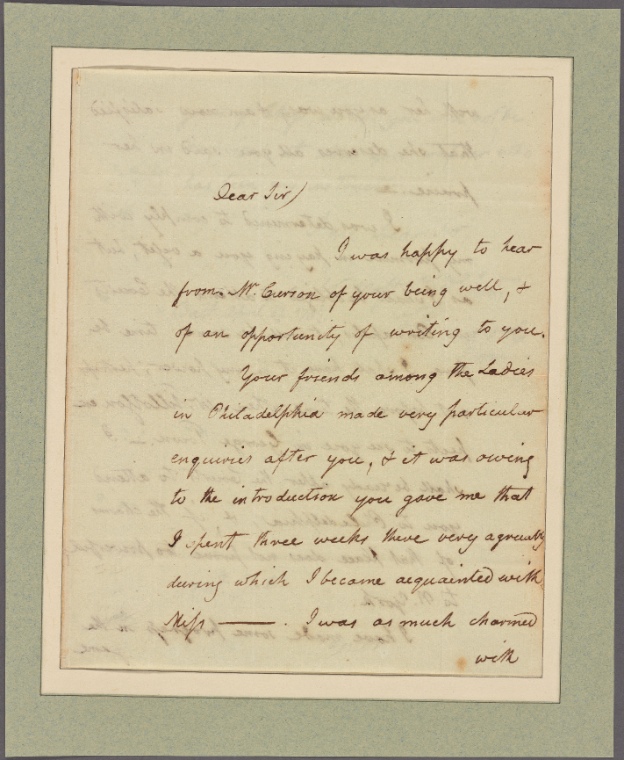 Dear Sir)
I was happy to hear
from Mr. Curson of your being well, &
of an opportunity of writing to you.
Your friends among the Ladies
in Philadelphia made very particular
enquiries after you, & it was owing
to the introduction you gave me that
I spent three weeks there very agreeably
during which I became acquainted with
Miss ——. I was as much charmed
with